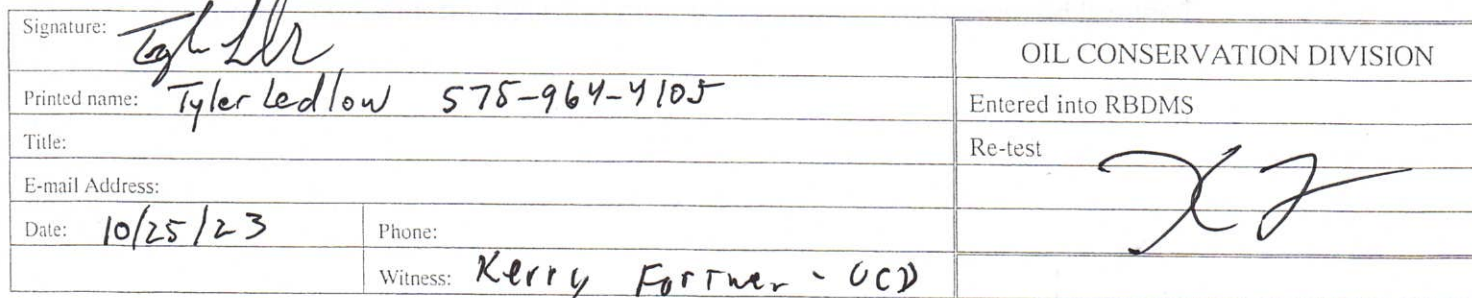 Signature:
Printed name: Tyler Ledlow 575-964-4105
Title:
E-mail Address:
Date: 10/25/23
Phone:
Witness: Kerry Fortner - OCD
OIL CONSERVATION DIVISION
Entered into RBDMS
Re-test